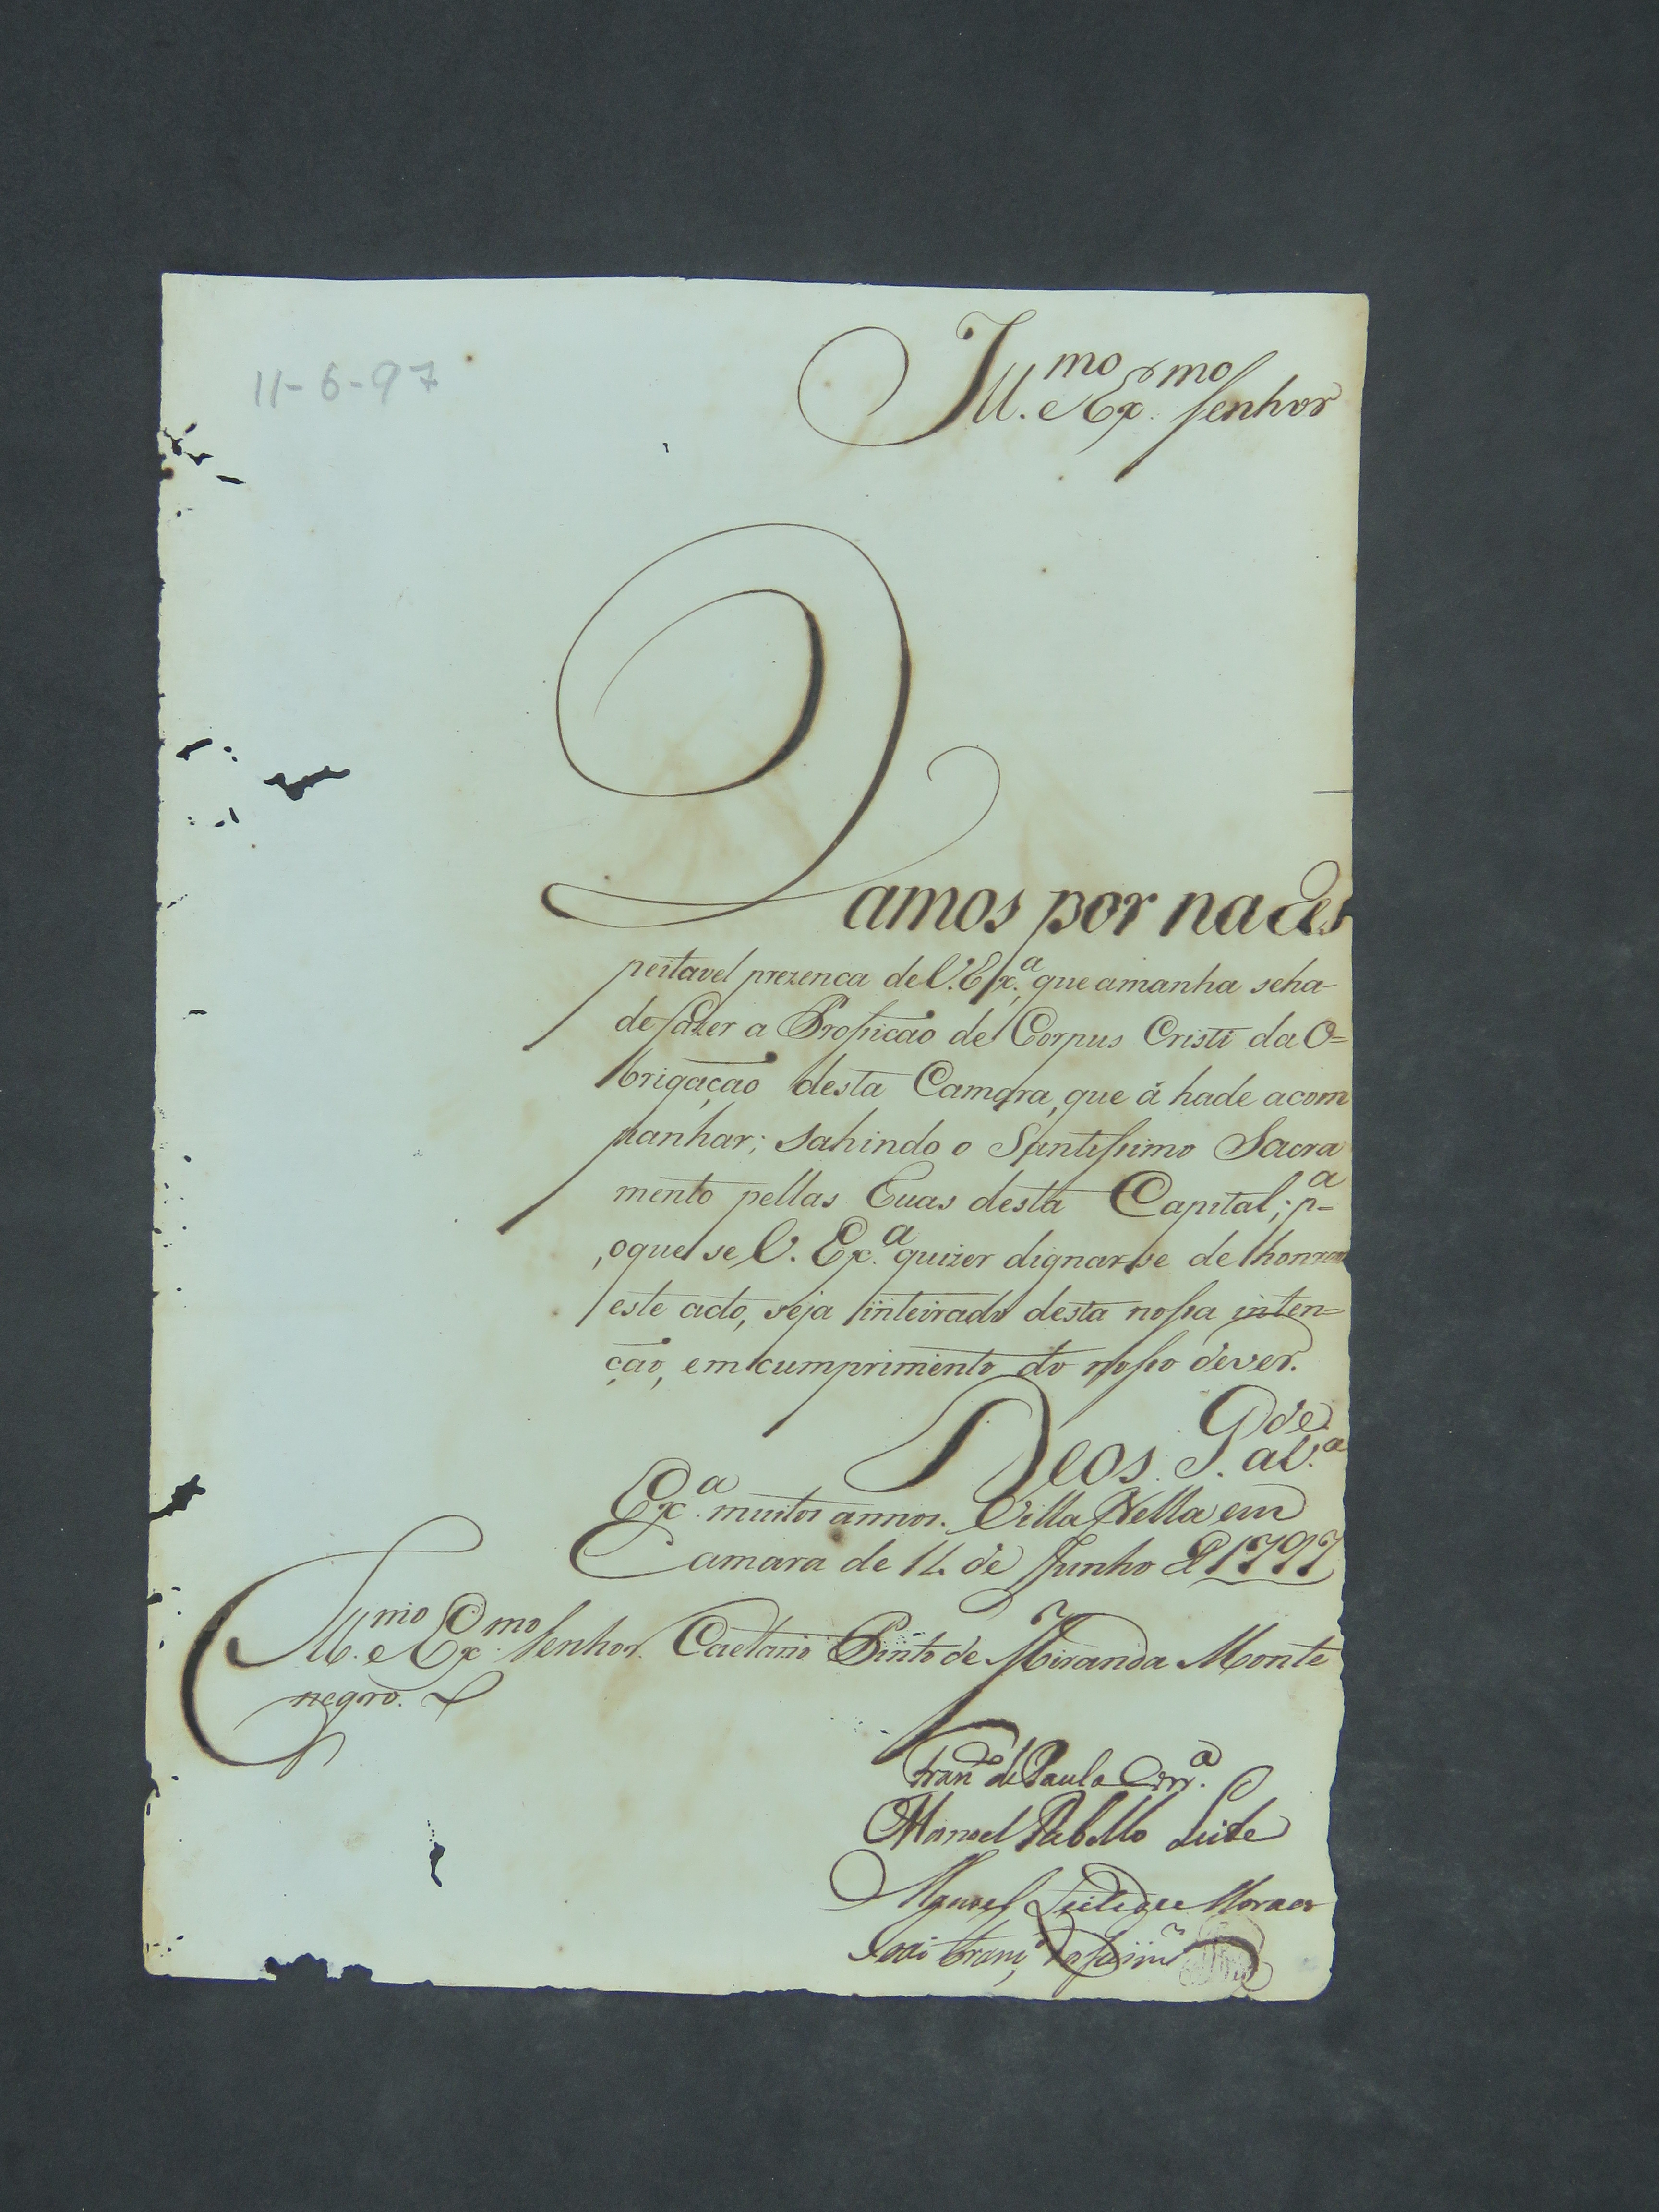 11-6-97
Ill.mo e Ex.mo Senhor
Vamos por na Res
peitavel prezenca de V. Ex.a, que amanha seha-
de fazer a Prosicao de Corpus Cristi da O=
brigação desta Camara, que á hade acom
panhar; Sahindo o Santissimo Sacra
mento pellas Ruas desta Capital; p.a
, oque se V. Ex.a quizer dignar-se de honrar
este acto, seja inteirado desta nossa inten=
ção, em cumprimento do nosso dever.
Deos G.de a V.a
Ex.a muitos annos. Villa Bella em
Camara de 14 de Junho de 1797
Ill.mo e Ex.mo Senhor Caetano Pinto de Miranda Monte
negro.
Fran.co de Paula Corr.a
Manoel Rabello Leite
Manoel Leite de Moraes
João Fran.co